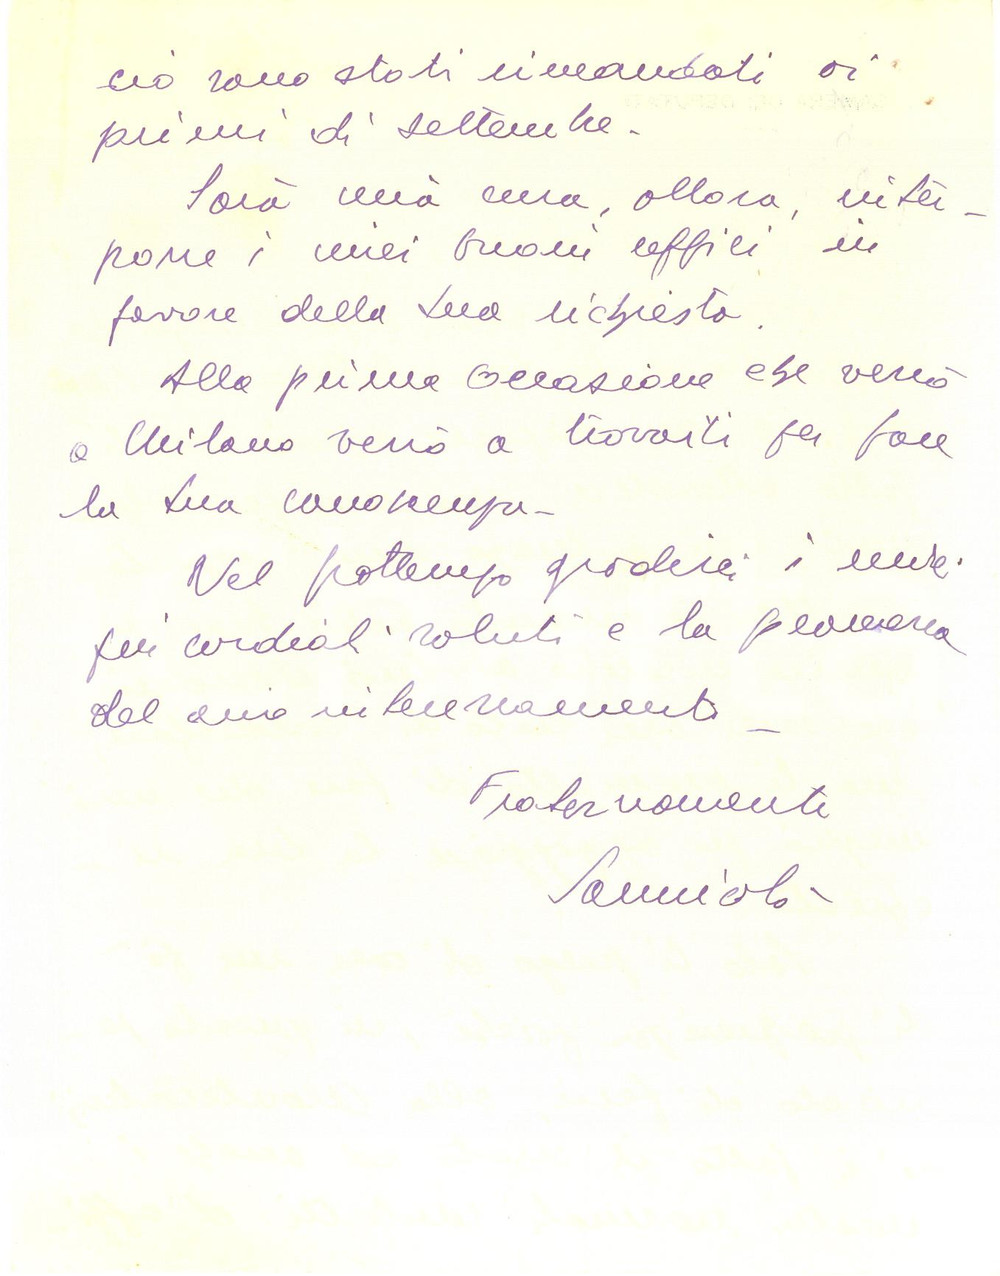 ciò sono stati rimandati ai
primi di settembre -
Sarà mia cura, allora, inter-
porre i miei buoni uffici in
favore della tua richiesta.
Alla prima occasione che verrò
a Milano verrò a trovarti per fare
la tua conoscenza -
Nel frattempo gradisci i miei
più cordiali saluti e la promessa
del mio interessamento -
Fraternamente
Sannicolò